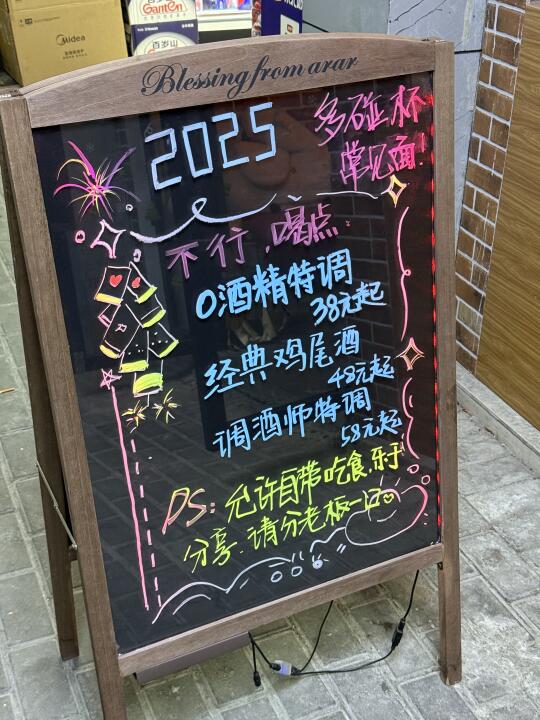 Midea
Ganten
百岁山
Blessing from arar
2025
多碰杯
常见面!
不行,喝点.
0酒精特调
38元起
经典鸡尾酒
48元起
调酒师特调
58元起
PS: 允许自带吃食,乐于
分享.请分老板一口